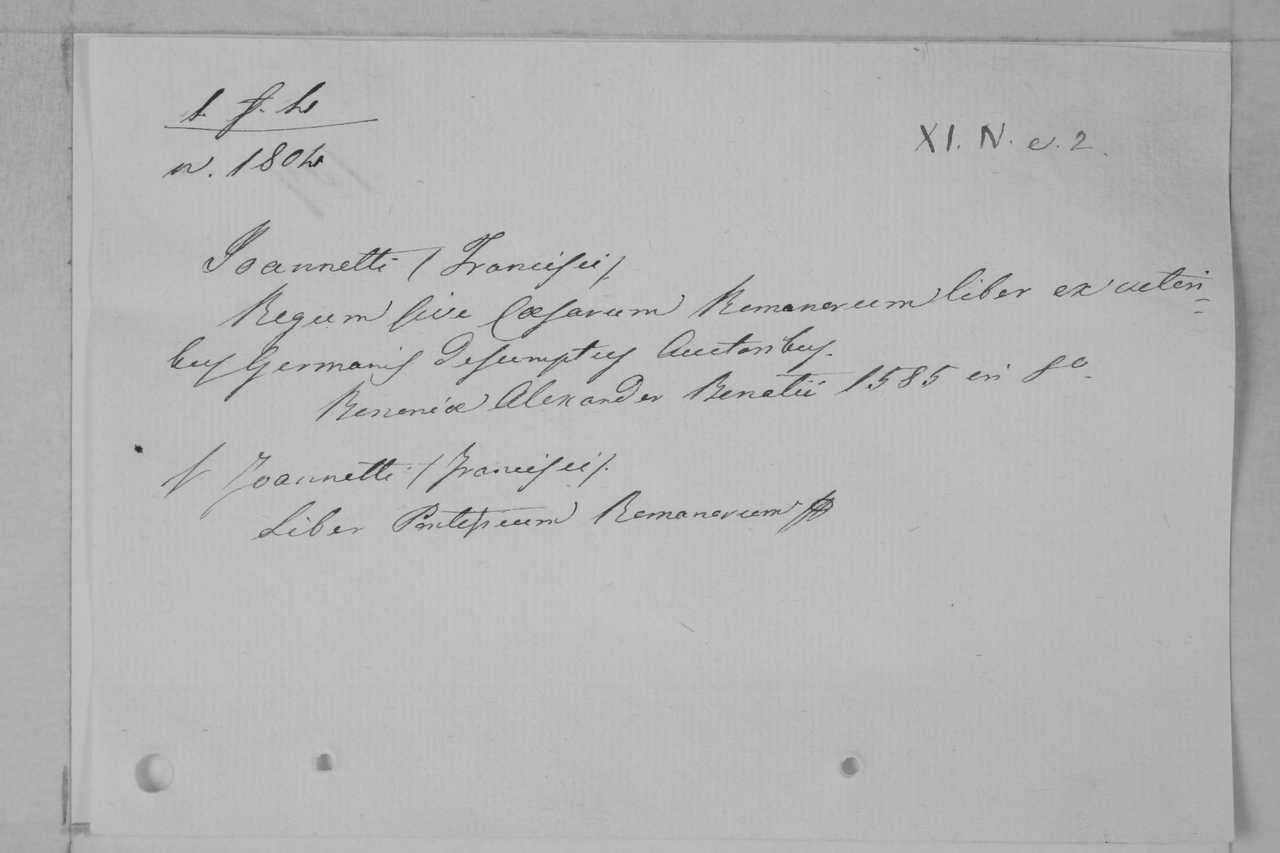 t. f. h
n. 1804
XI. N. c. 2.
Joannetti / Francisci /
Regum sive Cæsarum Romanorum liber ex veteri=
bus Germanis desumptus Auctoribus.
Bononiæ Alexander Benatii 1585 in 8o
/ Joannetti / Francisci /
Liber Pontificum Romanorum